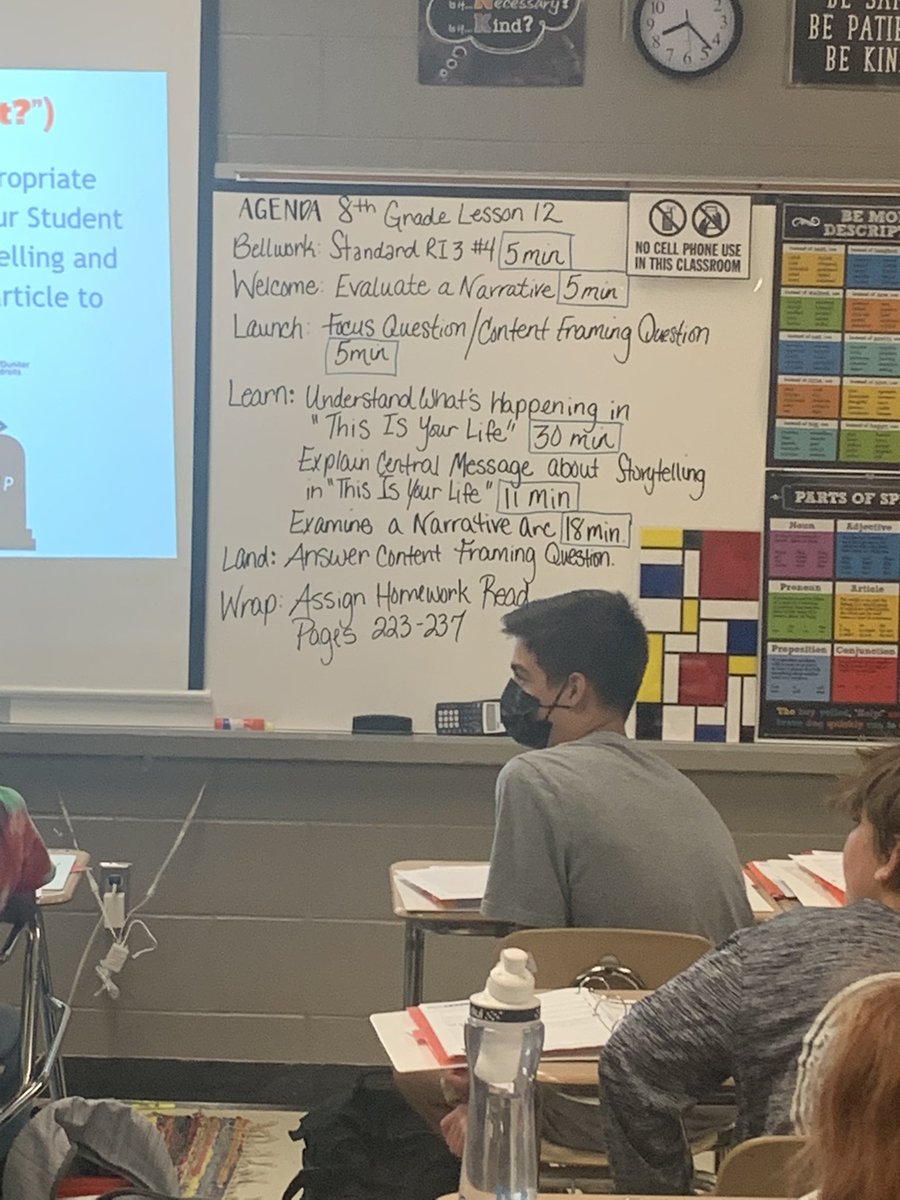 Necessary?
Kind?
10
2
9
3
8
4
7
6
5
BE PATIE
BE KIN
t?")
ropriate
ur Student
elling and
article to
P
AGENDA 8th Grade Lesson 12
Bellwork: Standard RI3 #4 5 min
Welcome: Evaluate a Narrative 5 min
Launch: Focus Question/Content Framing Question
5min
Learn: Understand What's Happening in
"This Is Your Life" 30 min
Explain Central Message about Storytelling
in "This Is Your Life" 11 min
Examine a Narrative Arc 18 min.
Land: Answer Content Framing Question.
Wrap: Assign Homework Read
Pages 223-237
NO CELL PHONE USE
IN THIS CLASSROOM
BE MO
DESCRIP
PARTS OF SP
Noun
Adjective
Pronoun
Article
Preposition
Conjunction